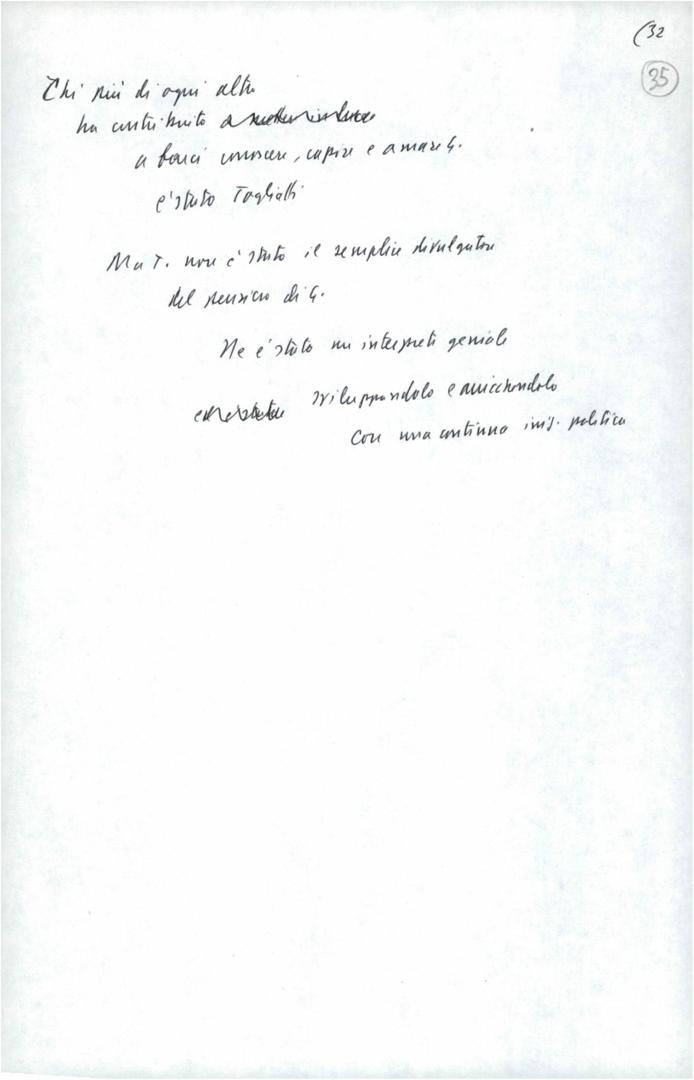 (32
35
Chi più di ogni altro
ha contribuito a mettere in luce
a farci conoscere, capire e amare G.
è stato Togliatti
Ma T. non è stato il semplice divulgatore
del pensiero di G.
Ne è stato un interprete geniale
sviluppandolo e arricchendolo
con una continua iniz. politica